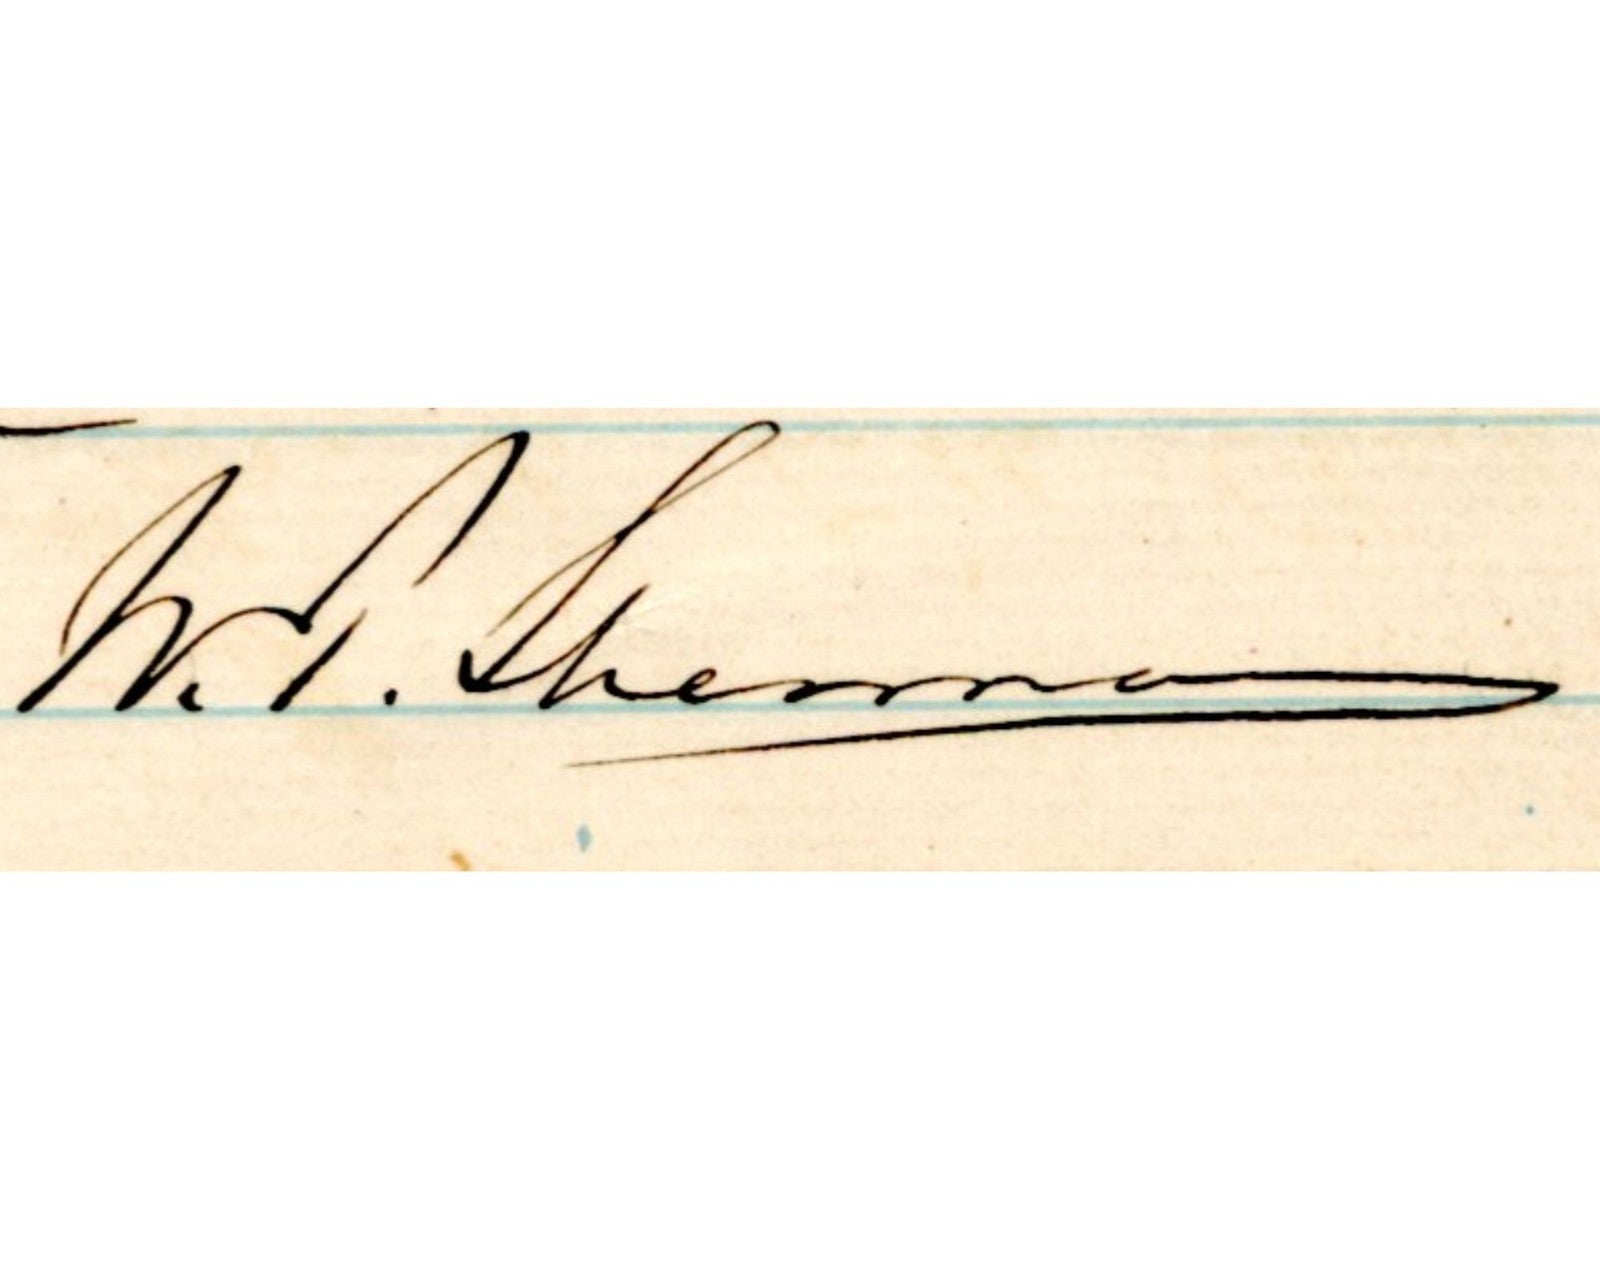 W. T. Sherman